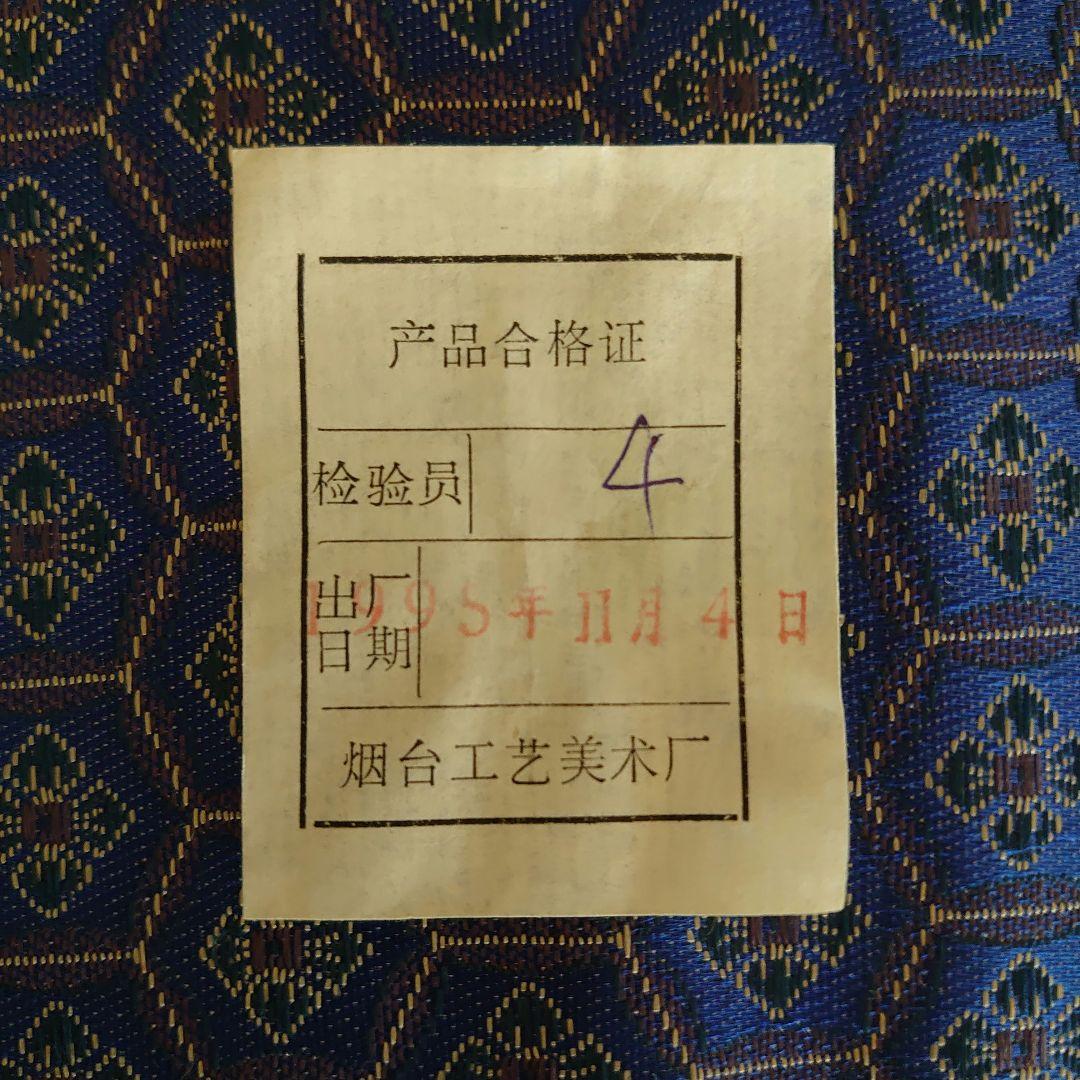 产品合格证
检验员 4
出厂
日期 1995年11月4日
烟台工艺美术厂